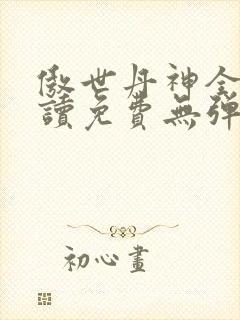 傲世丹神全
讀免費無彈
初心畫